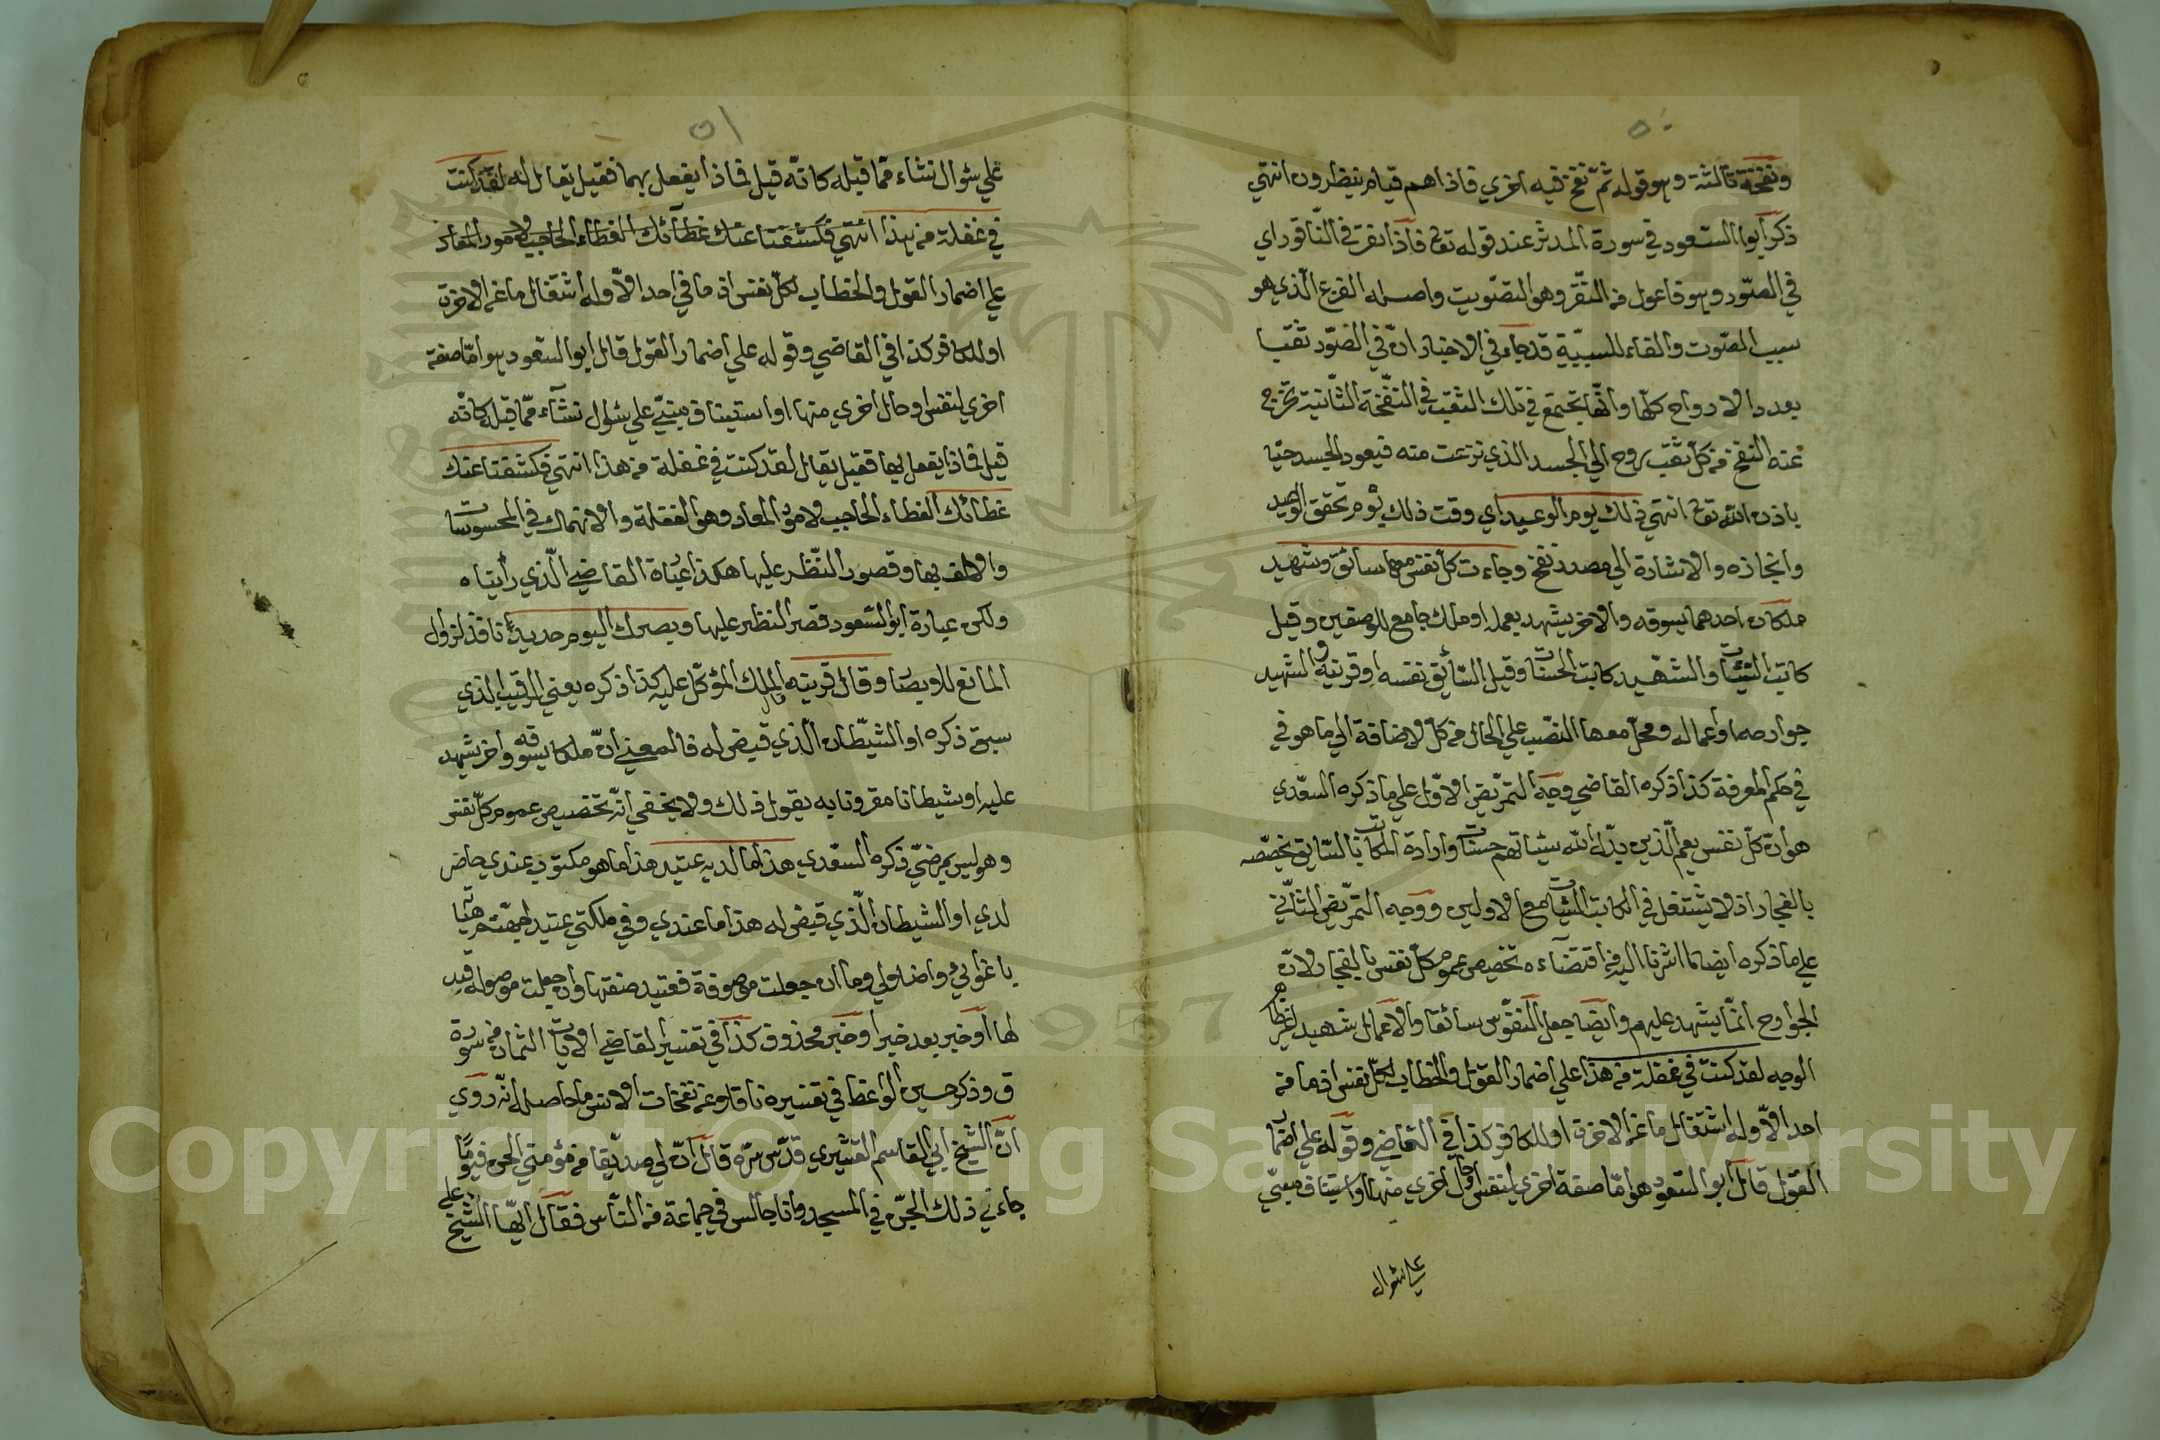 ٥٠
ونفخة ثالثة وهو قوله ثمّ نفخ فيه اخري فاذا هم قيام ينظرون انتهي
ذكر ابوا السّعود في سورة المدثر عند قوله تع فاذا نقر في النّاقور اي
في الصّور وهو فاعول من النقّر وهو التصّويت واصله القرع الّذي هو
سبب الصّوت والفاء للسببيّة قد جاء في الاخبار انّ في الصّور ثقبا
بعدد الارواح كلّها وانّها تجتمع في تلك الثقب في النفّخة الثّانية تخرج
عند النفخ من كلّ ثقب روح الي الجسد الذي نزعت منه فيعود الجسد حيّا
باذن الله تع انتهي ذلك يوم الوعيد اي وقت ذلك يوم تحقق الوعيد
وانجازه والاشارة الي مصدر نفخ وجاءت كلّ نفس معها سائق وشهيد
ملكان احدهما يسوقه والاخر يشهد بعمله او ملك جامع للوصفين وقيل
كاتب السّيئات والشّهيد كاتب الحسنات وقيل السّائق نفسه او قرينه والشهيد
جوارحه او اعماله ومحلّ معها النصّب علي الحال من كلّ لاضافة الي ما هو في
في حكم المعرفة كذا ذكره القاضي وجه التمرّيض الاوّل علي ما ذكره السعّدي
هو ان كلّ نفس يعم الّذين يبدّل الله سيئاتهم حسنات وارادة الكاتب بالسّايق يخصّصه
بالفجار اذ لا شتغل في الكاتب السّيئات مع الاولين ووجه التمرّيض الثّاني
علي ما ذكره ايضا ما اشرنا اليه من اقتضاءه تخصيص عموم كلّ نفس بالفجار لانّ
الجوارح انمّا يشهد عليهم وايضا جعل النفوّس سائقا والاعمال شهيد
الوجه لقد كنت في غفلة من هذا علي اضمار القول والخطاب لكلّ نفس اذ ما من
احد الاّ وله اشتغال ما عن الاخرة او للكافر كذا في القاضي وقوله علي اضما
القول قال ابو السّعود هو امّا صفة اخري لنفس او حال اخري منها او استيناف مبنيّ
علي سؤال
٥١
علي سؤال نشاء ممّا قبله كانّه قيل فماذا يفعل بهما فقيل يقال له لقد كنت
في غفلة من هذا انتهي فكشفنا عنك غطآئك الغطاء الحاجب لامور المعاد
علي اضمار القول والخطاب لكلّ نفس اذ ما في احد الاّ وله اشتغال ما عن الاخرة
او للكافر كذا في القاضي وقوله علي اضمار القول قال ابو السّعود هو امّا صفة
اخري لنفس او حال اخري منها او استيناف مبنيّ علي سؤال نشآء ممّا قبله كانّه
قيل فماذا يفعل بها فقيل يقال لقد كنت في غفلة من هذا انتهي فكشفنا عنك
غطائك الغطاء الحاجب لامور المعاد وهو الغفلة والانهماك في المحسوسات
والالف بها وقصور النّظر عليها هكذا عبارة القاضي الّذي رأيناه
ولكن عبارة ابو السّعود قصر النظر عليها وبصرك اليوم حديد نافذ لزوال
المانع للابصار وقال قرينه قال الملك المؤكّل عليه كذا ذكره يعني الرقيب الذي
سبق ذكره او الشّيطان الّذي قيض له فالمعني انّ ملكا يسوقه واخر يشهد
عليه وشيطانا مقرونا به يقول ذلك ولا يخفي انّه تخصيص عموم كلّ نفس
وهو ليس بمرضيّ ذكره السعّدي هذا ما لديه عتيد هذا ما هو مكتوب عندي حاضر
لدي او الشيطان الّذي قيض له هذا ما عندي وفي ملكتي عتيد لجهنّم هيّأته
باغوائي واضلالي وما ان جعلت موصوفة فعتيد صفتها وان جعلت موصولة فبد
لها او خبر بعد خبر او خبر محذوف كذا في تفسير القاضي الايات الثمان في سورة
ق وذكر حسين الواعظ في تفسيره ناقلا عن نفحات الانس ما حاصله انّه روي
انّ الشيخ ابي القاسم القشيري قدّس سرّه قال انّ لي صديقا من مؤمني الجن فيومًا
جاءني ذلك الجنّ في المسجد وانا جالس في جماعة من النّاس فقال ايّها الشّيخ علي